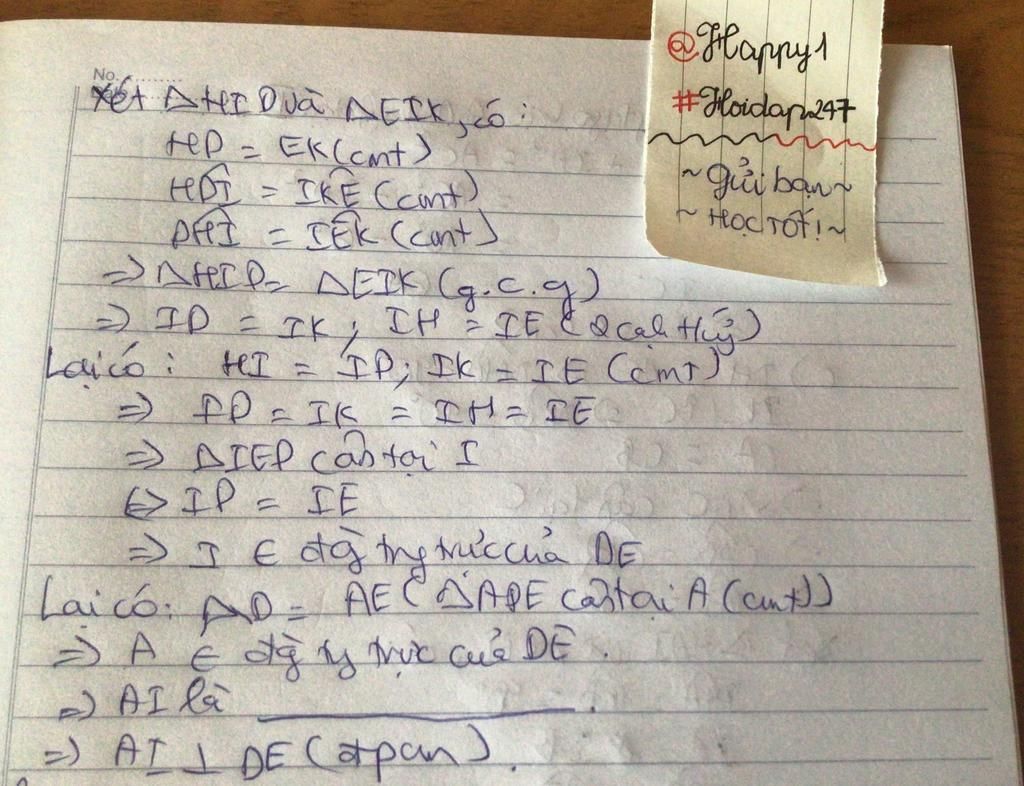 No.
Xét ΔHID và ΔEIK, có:
HD = EK (cmt)
HDI = IKE (cmt)
DHI = IEK (cmt)
=> ΔHID = ΔEIK (g.c.g)
=> ID = IK; IH = IE (2 cạnh t/ứ)
Lại có: HI = ID; IK = IE (cmt)
=> ID = IK = IH = IE
=> ΔIED cân tại I
<=> ID = IE
=> I ∈ đg trug trực của DE
Lại có: AD = AE (ΔADE cân tại A (cmt))
=> A ∈ đg tg trực của DE.
=> AI là ________.
=> AI ⊥ DE (đpcm).
@Happy1
#Hoidap247
~ Gửi bạn ~
~ HỌC TỐT! ~